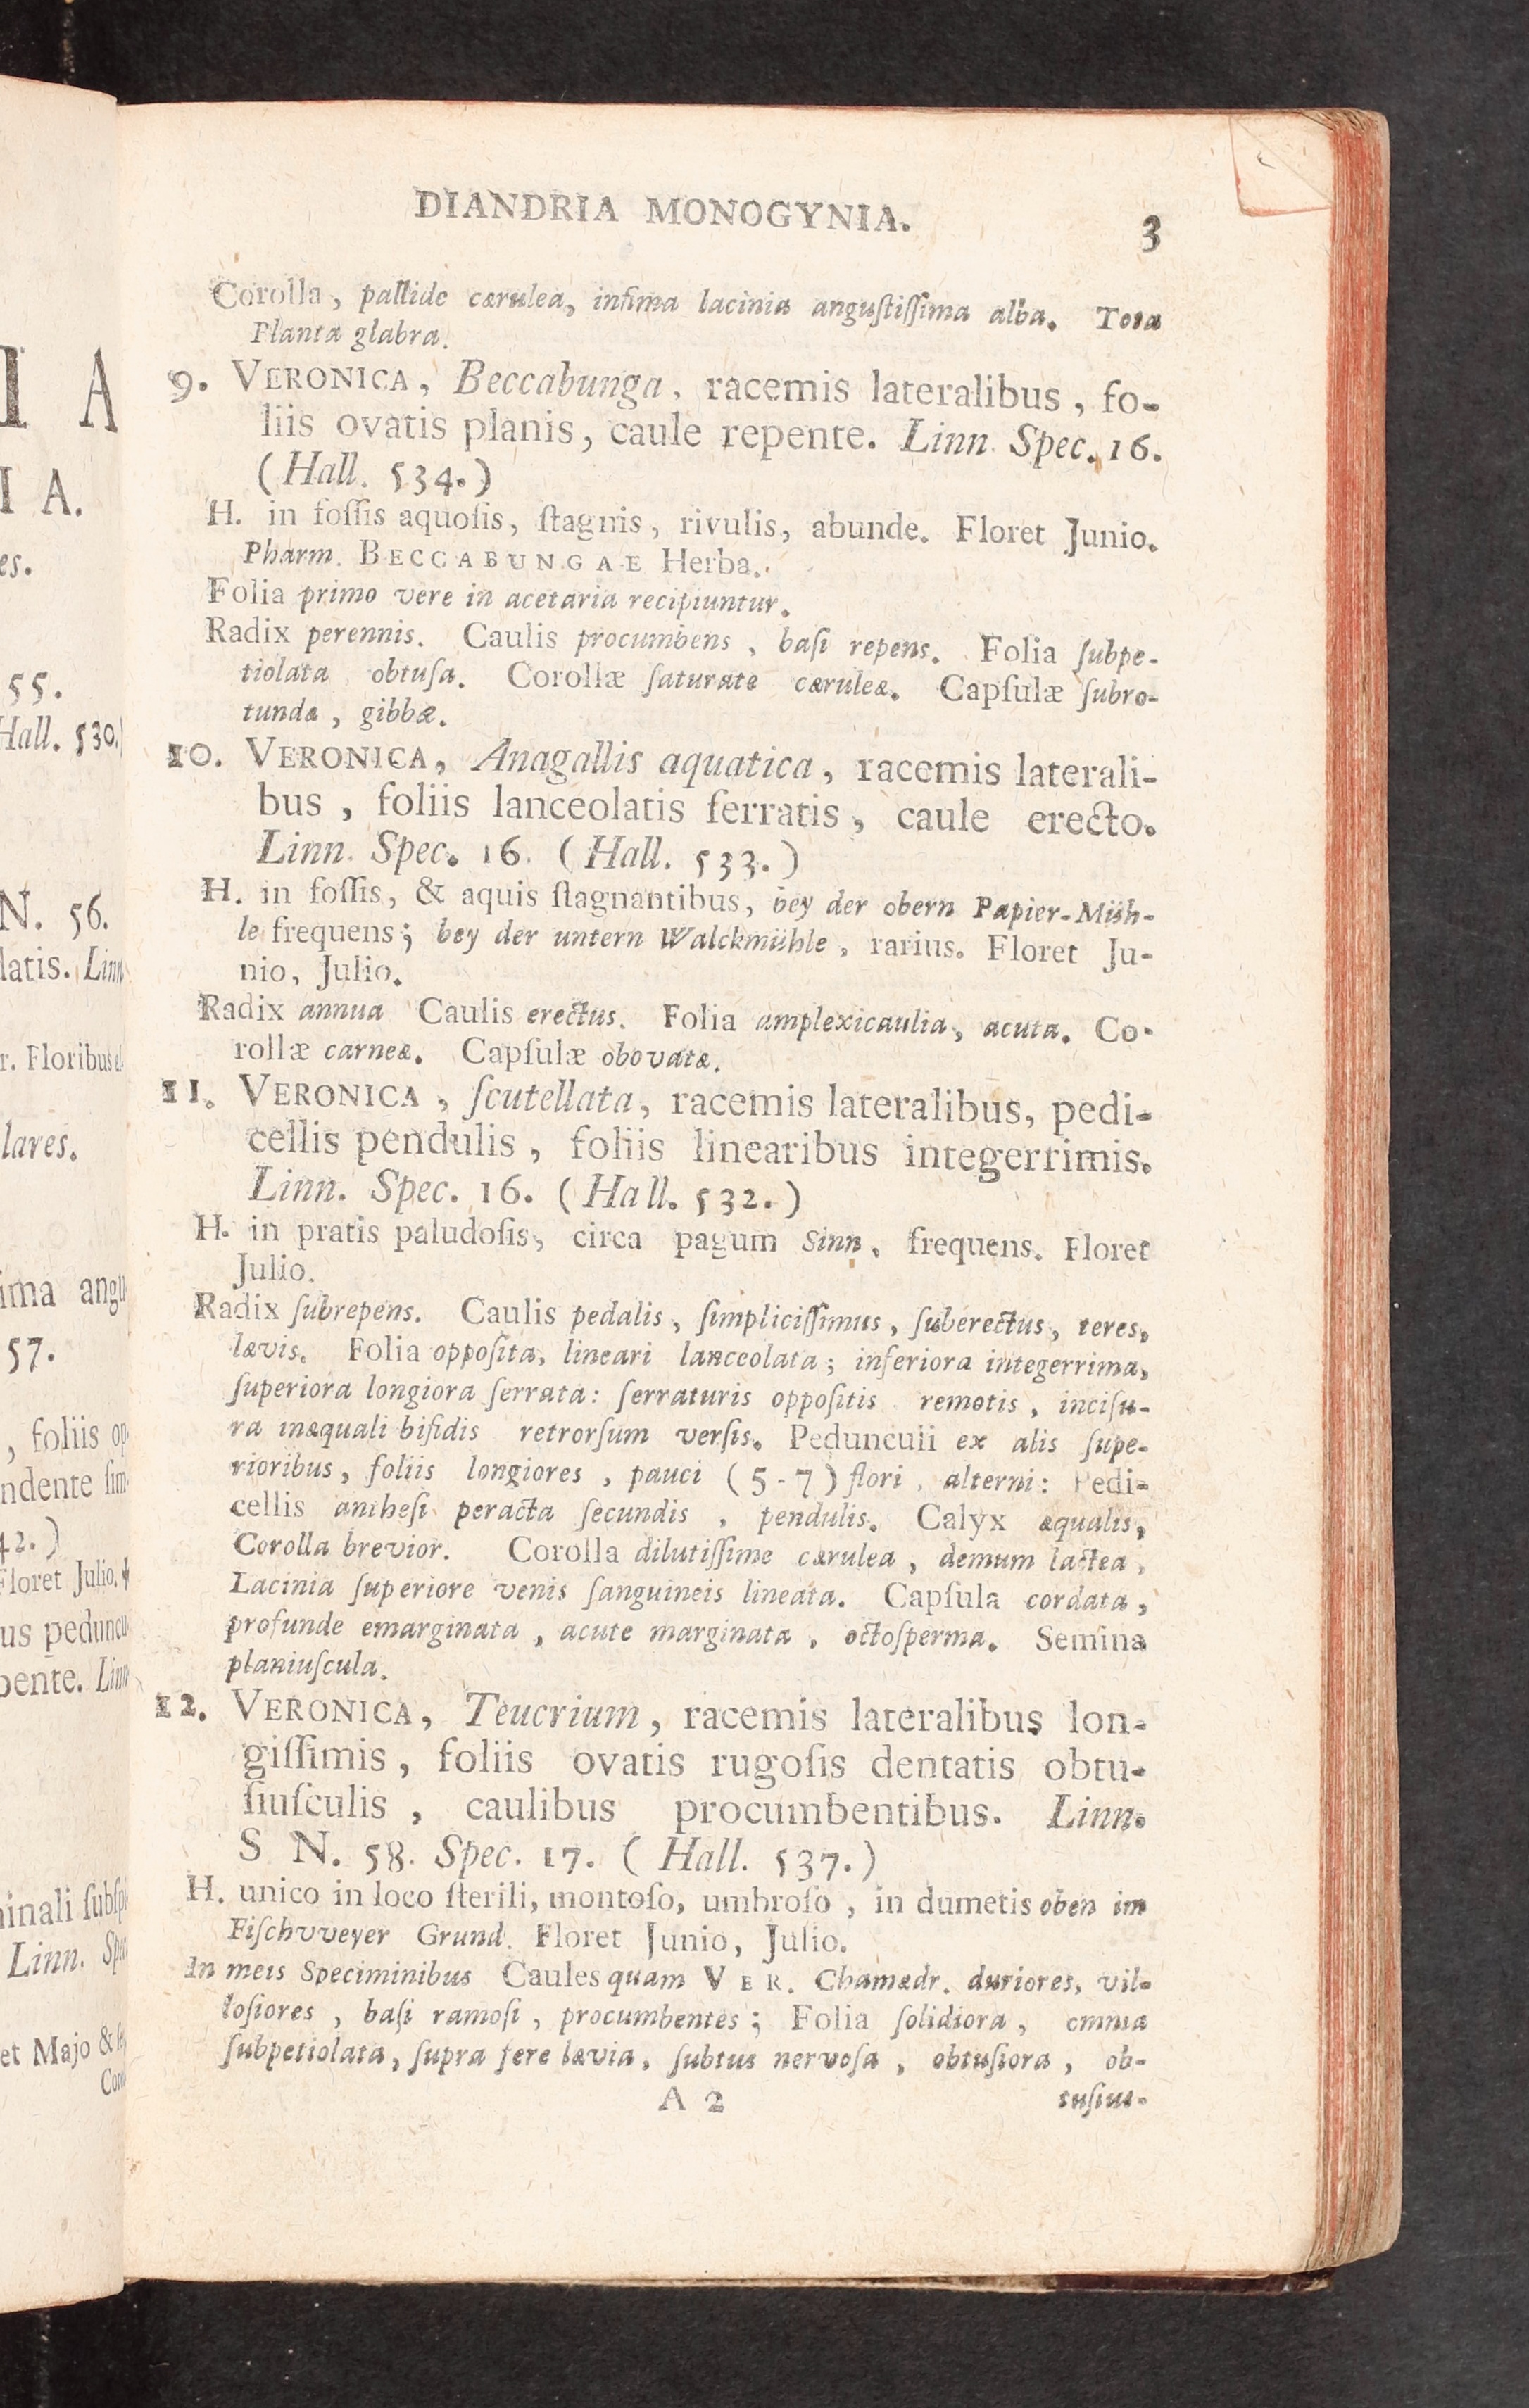 I A
I A.
es.
55.
Hall. 530.)
N. 56.
latis. Linn
r. Floribus
lares.
ima angu
57.
, foliis op
ndente ſim
42.)
Floret Julio.
us peduncu
pente. Linn
inali ſubſpi
Linn. Spec
et Majo &
DIANDRIA MONOGYNIA.
3
Corolla, pallide cærulea, infima lacinia anguſtiſſima alba. Tota
Planta glabra.
9. VERONICA, Beccabunga, racemis lateralibus, fo-
liis ovatis planis, caule repente. Linn. Spec. 16.
(Hall. 534.)
H. in foſſis aquoſis, ſtagnis, rivulis, abunde. Floret Junio.
Pharm. BECCABUNGAE Herba.
Folia primo vere in acetaria recipiuntur.
Radix perennis. Caulis procumbens, baſi repens. Folia ſubpe-
tiolata obtuſa. Corollæ ſaturate cæruleæ. Capſulæ ſubro-
tundæ, gibbæ.
10. VERONICA, Anagallis aquatica, racemis laterali-
bus, foliis lanceolatis ſerratis, caule erecto.
Linn. Spec. 16. (Hall. 533.)
H. in foſſis, & aquis ſtagnantibus, bey der obern Papier-Müh-
le frequens; bey der untern Walckmühle, rarius. Floret Ju-
nio, Julio.
Radix annua Caulis erectus. Folia amplexicaulia, acuta. Co-
rollæ carneæ. Capſulæ obovatæ.
11. VERONICA, ſcutellata, racemis lateralibus, pedi-
cellis pendulis, foliis linearibus integerrimis.
Linn. Spec. 16. (Hall. 532.)
H. in pratis paludoſis, circa pagum Sinn, frequens. Floret
Julio.
Radix ſubrepens. Caulis pedalis, ſimpliciſſimus, ſuberectus, teres,
lævis. Folia oppoſita, lineari lanceolata; inferiora integerrima,
ſuperiora longiora ſerrata: ſerraturis oppoſitis remotis, inciſu-
ra inæquali bifidis retrorſum verſis. Pedunculi ex alis ſupe-
rioribus, foliis longiores, pauci (5-7) flori, alterni: Pedi-
cellis antheſi peracta ſecundis, pendulis. Calyx æqualis,
Corolla brevior. Corolla dilutiſſime cærulea, demum lactea,
Lacinia ſuperiore venis ſanguineis lineata. Capſula cordata,
profunde emarginata, acute marginata, octoſperma. Semina
planiuſcula.
12. VERONICA, Teucrium, racemis lateralibus lon-
giſſimis, foliis ovatis rugoſis dentatis obtu-
ſiuſculis, caulibus procumbentibus. Linn.
S N. 58. Spec. 17. (Hall. 537.)
H. unico in loco ſterili, montoſo, umbroſo, in dumetis oben im
Fiſchvveyer Grund. Floret Junio, Julio.
In meis Speciminibus Caules quam VER. Chamædr. duriores, vil-
loſiores, baſi ramoſi, procumbentes; Folia ſolidiora, omnia
ſubpetiolata, ſupra fere lævia, ſubtus nervoſa, obtuſiora, ob-
A 2
tuſius-